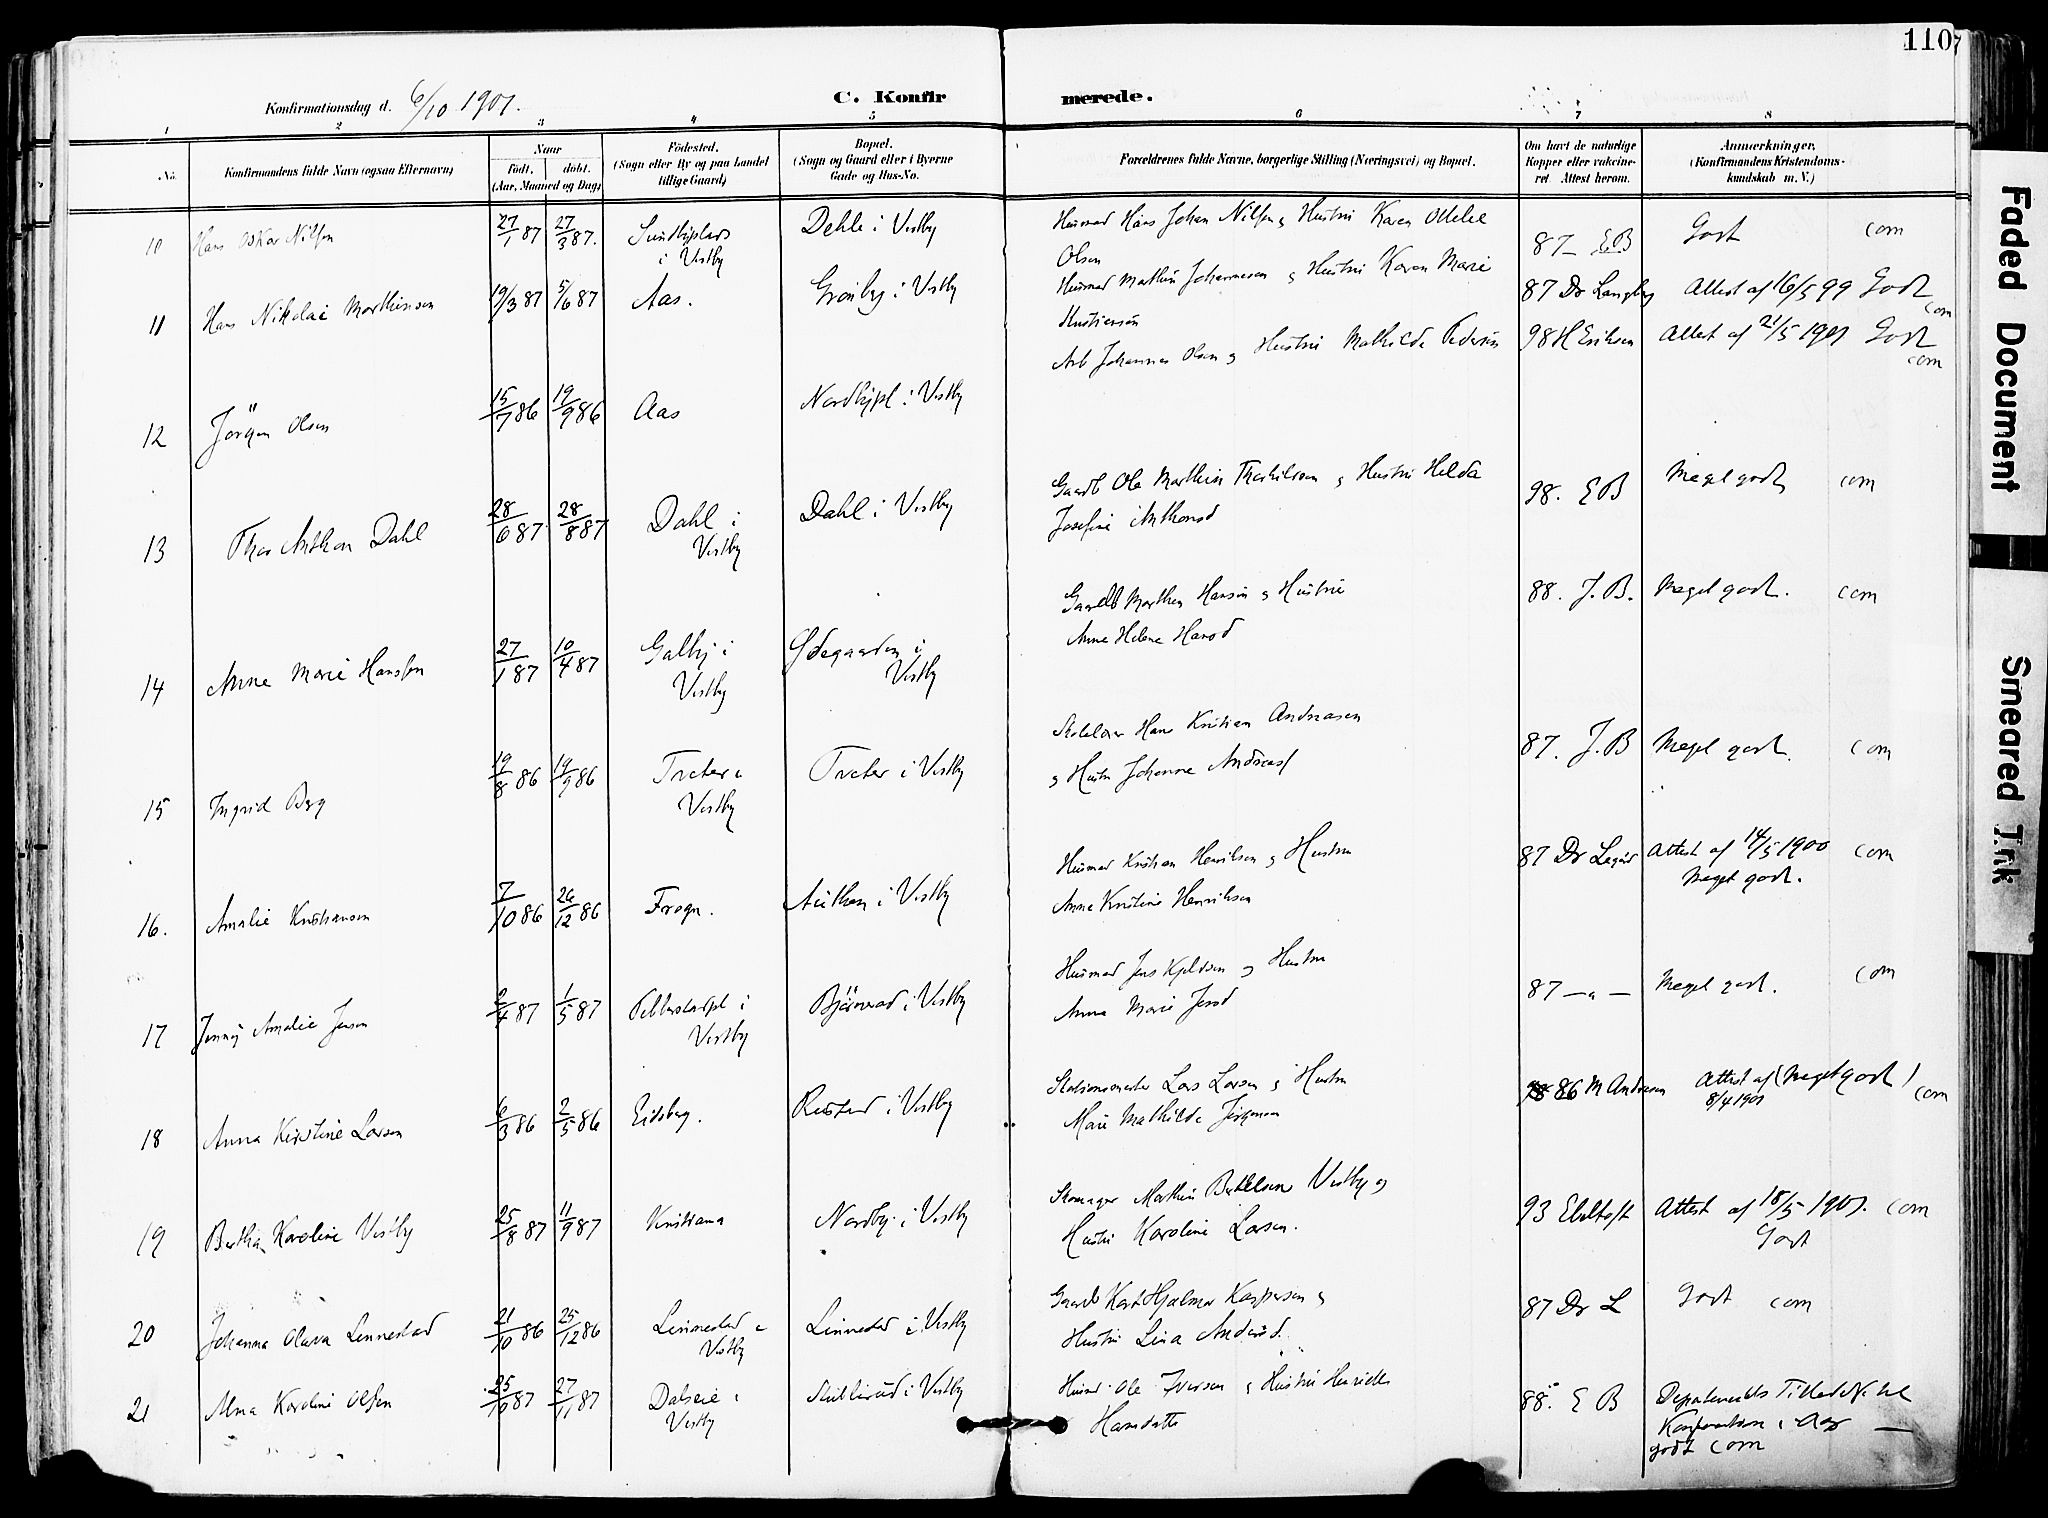 110
Konfirmationsdag d. 6/10 1901.
C. Konfirmerede.
1 2 3 4 5 6 7 8
No.
Konfirmandens fulde Navn (ogsaa Efternavn)
Naar
Födt. döbt.
(Aar, Maaned og Dag)
Födested.
(Sogn eller By og paa Landet
tillige Gaard)
Bopæl.
(Sogn og Gaard eller i Byerne
Gade og Hus-No.
Forældrenes fulde Navne, borgerlige Stilling (Næringsvei) og Bopæl.
Om havt de naturlige
Kopper eller vakcine-
ret. Attest herom.
Anmærkninger.
(Konfirmandens Kristendoms-
kundskab m. V.)
10 Hans Oskar Nilsen 27/1 87 27/3 87. Sundbyplads
i Vestby
Dehle i Vestby
Husmd Hans Johan Nilsen og Hustru Karen
Olsen
87 — EB Godt com
11 Hans Nikolai Marthinsen 19/3 87 5/6 87 Aas. Grønby i Vestby
Husmd Marthin Johannesen og Hustru Karen Marie
87 Dr Langberg Attest af 16/5 99 Godt com
12 Jörgen Olsen 15/7 86 19/9 86 Aas Nordbypl i Vestby
Arb Johannes Olsen og Hustru Mathilde Pedersen
98 H Eriksen Attest af 21/5 1901 Godt com
13 Thor Anthon Dahl 28/6 87 28/8 87 Dahl i
Vestby
Dahl i Vestby
Gaardb Ole Marthin Thorkilsen og Hustru Hilda
Josefine Anthonsd
98. EB Meget godt com
14 Anne Marie Hansen 27/1 87 10/4 87 Galby i
Vestby
Ødegaarden i
Vestby
Gaardb Marthin Hansen og Hustru
Anne Helene Hansd
88. J.B. Meget godt. com
15 Ingrid Berg 19/8 86 19/9 86 Treter i
Vestby
Treter i Vestby
Skolelærer Hans Kristian Andreasen
og Hustru Johanne Andreasd
87. J.B Meget godt. com
16. Amalie Kristiansen 7/10 86 26/12 86 Frogn. Authen i Vestby
Husmd Kristian Henriksen og Hustru
Anne Kristine Henriksen
87 Dr Attest af 14/5 1900 com
Meget godt.
17 Jenny Amalie Jensen 2/4 87 1/5 87 i
Vestby
Bjørnerød i Vestby
Husmd Jens Kjeldsen og Hustru
Anna Marie Jensd
87 — " — Meget godt. com
18 Anna Kirstine Larsen 6/3 86 2/5 86 Eidsberg. Rustad i Vestby
Stationsmester Lars Larsen og Hustru
Marie Mathilde Jörgensen
86 M Andresen Attest af (Meget godt) com
8/4 1901
19 Berthe Karoline Vestby 25/8 87 11/9 87 Kristiania Nordby i Vestby
Skomager Marthin Berthelsen Vestby og
Hustru Karoline Larsen.
93 Ebeltoft Attest af 18/5 1901. com
Godt
20 Johanna Olava Linnestad 21/10 86 25/12 86 Linnestad i
Vestby
Linnestad i Vestby
Gaardb Karl Hjalmar Kaspersen og
Hustru Lina Andersd.
87 Dr L Godt com
21 Alma Karoline Olsen 25/10 87 27/11 87 i
Vestby
i Vestby
Husmd Ole Iversen og Hustru
Hansdatter
88. E B Departementets Tilladelse til
Konfirmation i Aar —
godt com
Faded Document
Smeared Ink